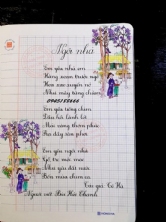 Ngôi nhà
Em yêu nhà em
Hàng xoan trước ngõ
Hoa xao xuyến nở
Như mây từng chùm
Em yêu tiếng chim
Đầu hồi lảnh lót
Mái vàng thơm phức
Rạ đầy sân phơi
Em yêu ngôi nhà
Gỗ, tre mộc mạc
Như yêu đất nước
Bốn mùa chim ca
Tác giả: Tô Hà
Người viết: Bùi Hải Thanh